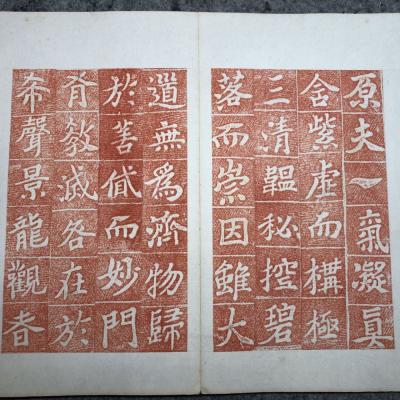 原夫一氣凝眞
含紫虛而構極
三清韞秘控碧
落而崇因雖大
道無爲濟物歸
於善貸而妙門
有教滅咎在於
希聲景龍觀者